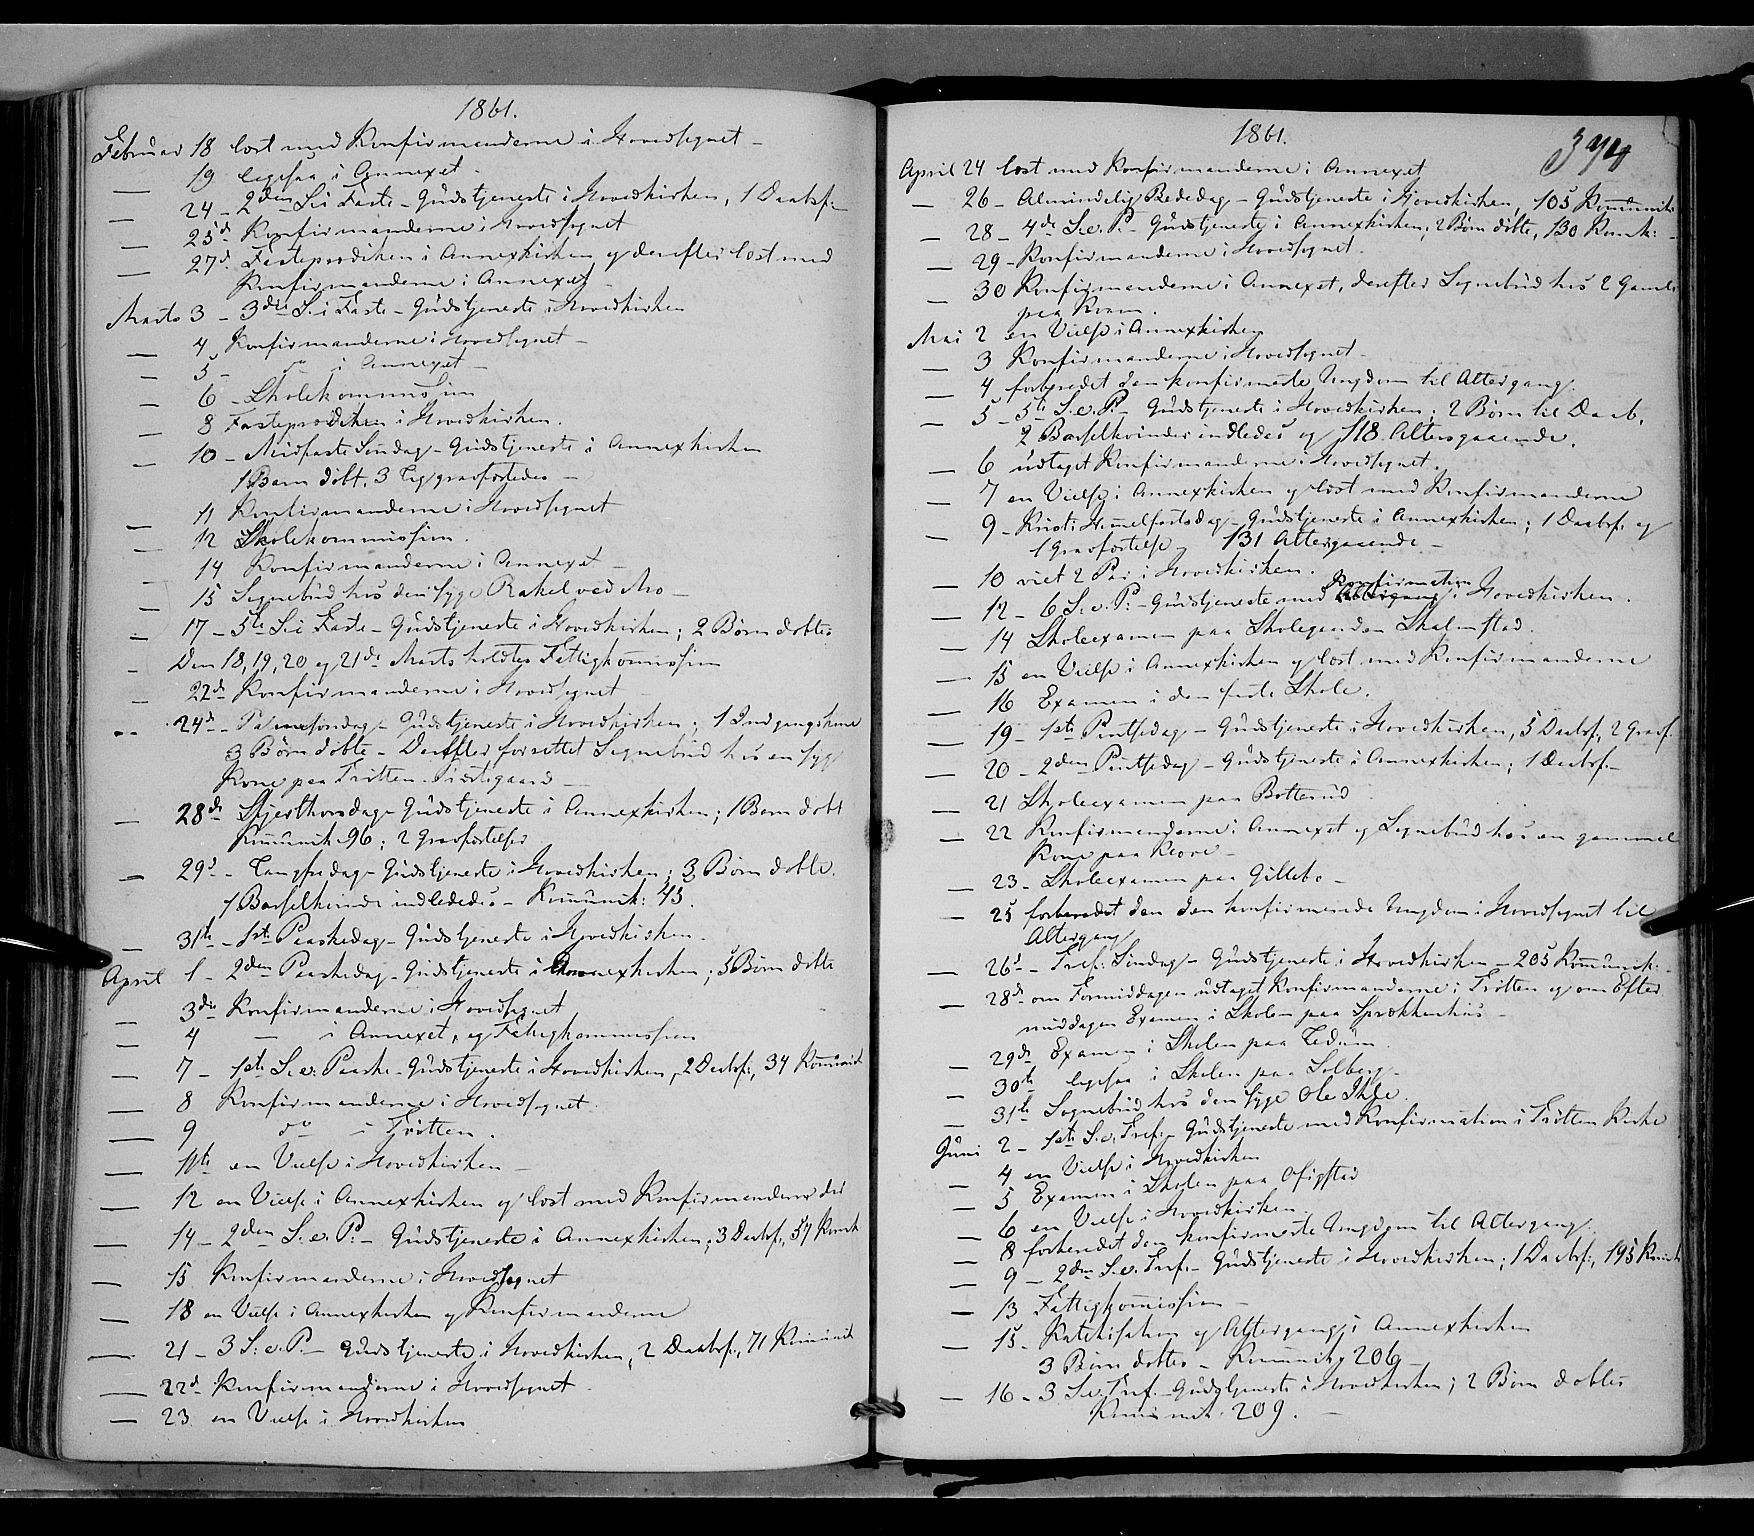 1861.
Februar 18 læst med Konfirmanderne i Hovedsognet –
— 19 ligesaa i Annexet –
— 24 – 2den S. i Faste – Gudstjeneste i Hovedkirken, 1 Daabsf. –
— 25d Konfirmanderne i Hovedsognet
— 27d. Fasteprædiken i Annexkirken og derefter læst med
Konfirmanderne i Annexet –
Marts 3 – 3die S. i Faste – Gudstjeneste i Hovedkirken
— 4 Konfirmanderne i Hovedsognet –
— 5 – do i Annexet –
— 6 – Skolekommission
— 8 Fasteprædiken i Hovedkirken.
— 10 – Midfaste Søndag – Gudstjeneste i Annexkirken
1 Barn døbt, 3 Lig gravfæstedes –
— 11 Konfirmanderne i Hovedsognet
— 12 Skolekommission.
— 14 Konfirmanderne i Annexet –
— 15 Sognebud hos den syge Rakel ved Aao –
— 17 – 5te S. i Faste – Gudstjeneste i Hovedkirken; 2 Børn døbtes
— Den 18, 19, 20 og 21de Marts holdtes Fattigkom̅ission
— 22de Konfirmanderne i Hovedsognet –
— 24d – Palmesøndag – Gudstjeneste i Hovedkirken; 1 Indgangskone
3 Børn døbte – Derefter forrettet Sognebud hos en syg
Kone paa Tretten Præstegaard –
— 28de Skjærthorsdag – Gudstjeneste i Annexkirken; 1 Barn døbt
Kom̅unik. 96; 2 Gravfæstelser
— 29d – Langfredag – Gudstjeneste i Hovedkirken; 3 Børn døbte.
1 Barselkvinde indlededes – Kom̅unik: 45.
— 31te – 1ste Paaskedag – Gudstjeneste i Hovedkirken.
April 1 – 2den Paaskedag – Gudstjeneste i Annexkirken; 5 Børn døbte
— 3die Konfirmanderne i Hovedsognet
— 4 — i Annexet, og Fattigkommission
— 7 – 1ste S. e. Paaske – Gudstjeneste i Hovedkirken, 2 Daabsf., 34 Kom̅unik
— 8 Konfirmanderne i Hovedsognet.
— 9 do i Trøtten.
— 11te en Vielse i Hovedkirken –
— 12 en Vielse i Annexkirken og læst med Konfirmanderne der
— 14 – 2den S. e. P. – Gudstjeneste i Annexkirken; 3 Daabsf., 57 Komk
— 15 Konfirmanderne i Hovedsognet
— 18 en Vielse i Annexkirken og Konfirmanderne
— 21 – 3 S. e. P. – Gudstjeneste i Hovedkirken, 2 Daabsf., 71 Kom̅unik
— 22d Konfirmanderne i Hovedsognet.
— 23 en Vielse i Hovedkirken
1861.
374
April 24 læst med Konfirmanderne i Annexet
— 26 – Almindelig Bededag – Gudstjeneste i Hovedkirken, 105 Kom̅unik:
— 28 – 4de S. e. P. – Gudstjeneste i Annexkirken; 2 Børn døbte, 130 Komk: –
— 29 – Konfirmanderne i Hovedsognet.
— 30 Konfirmanderne i Annexet, derefter Sognebud hos 2 Gamle
paa Kram.
Mai 2 en Vielse i Annexkirken
— 3 Konfirmanderne i Hovedsognet –
— 4 forberedet den konfirmerte Ungdom til Altergang.
— 5 – 5te S. e. P. – Gudstjeneste i Hovedkirken; 2 Børn til Daab,
2 Barselkvinder indledes og 118 Altergaaende.
— 6 udtaget Konfirmanderne i Hovedsognet.
— 7 en Vielse i Annexkirken og læst med Konfirmanderne
— 9 – Kristi Him̅elfartsdag – Gudstjeneste i Annexkirken; 1 Daabsf. og
1 Gravfæstelse – 131 Altergaaende –
— 10 viet 2 Par i Hovedkirken.
— 12 – 6 S. e. P. – Gudstjeneste med Konfirmation i Hovedkirken.
— 14 Skoleexamen paa Skolegaarden Skalmstad.
— 15 en Vielse i Annexkirken og læst med Konfirmanderne
— 16 Examen i den faste Skole.
— 19 – 1ste Pintsedag – Gudstjeneste i Hovedkirken, 5 Daabsf., 2 Gravf.
— 20 – 2den Pintsedag – Gudstjeneste i Annexkirken; 1 Daabsf. –
— 21 Skoleexamen paa Botterud
— 22 Konfirmanderne i Annexet og Sognebud hos en gammel
Kone paa –
— 23 – Skoleexamen paa Gillebo –
— 25 forberedet den den konfirmerede Ungdom i Hovedsognet til
Altergang
— 26d – Tref: Søndag – Gudstjeneste i Hovedkirken – 205 Kom̅unik: –
— 28d om Formiddagen udtaget Konfirmanderne i Trøtten og om Efter
middagen Examen i Skolen paa Sprækkenhus –
— 29de Examen i Skolen paa Ledum.
— 30te ligesaa i Skolen paa Solberg –
— 31te Sognebud hos den syge Ole Ihle.
Juni 2 – 1ste S. e. Tref. – Gudstjeneste med Konfirmation i Trøtten Kirke
— 4 en Vielse i Hovedkirken
— 5 Examen i Skolen paa Ofigstad
— 6 en Vielse i Hovedkirken.
— 8 forberedet den konfirmerte Ungdom til Altergang.
— 9 – 2den S. e. Tref. – Gudstjeneste i Hovedkirken; 1 Daabsf., 195 Kom̅unik
— 13 Fattigkom̅ission –
— 15 – Katekisation og Altergang i Annexkirken
3 Børn døbtes – Kom̅unik. 206 –
— 16 – 3 S. e. Tref. – Gudstjeneste i Hovedkirken; 2 Børn døbtes
Kom̅unik. 209. –